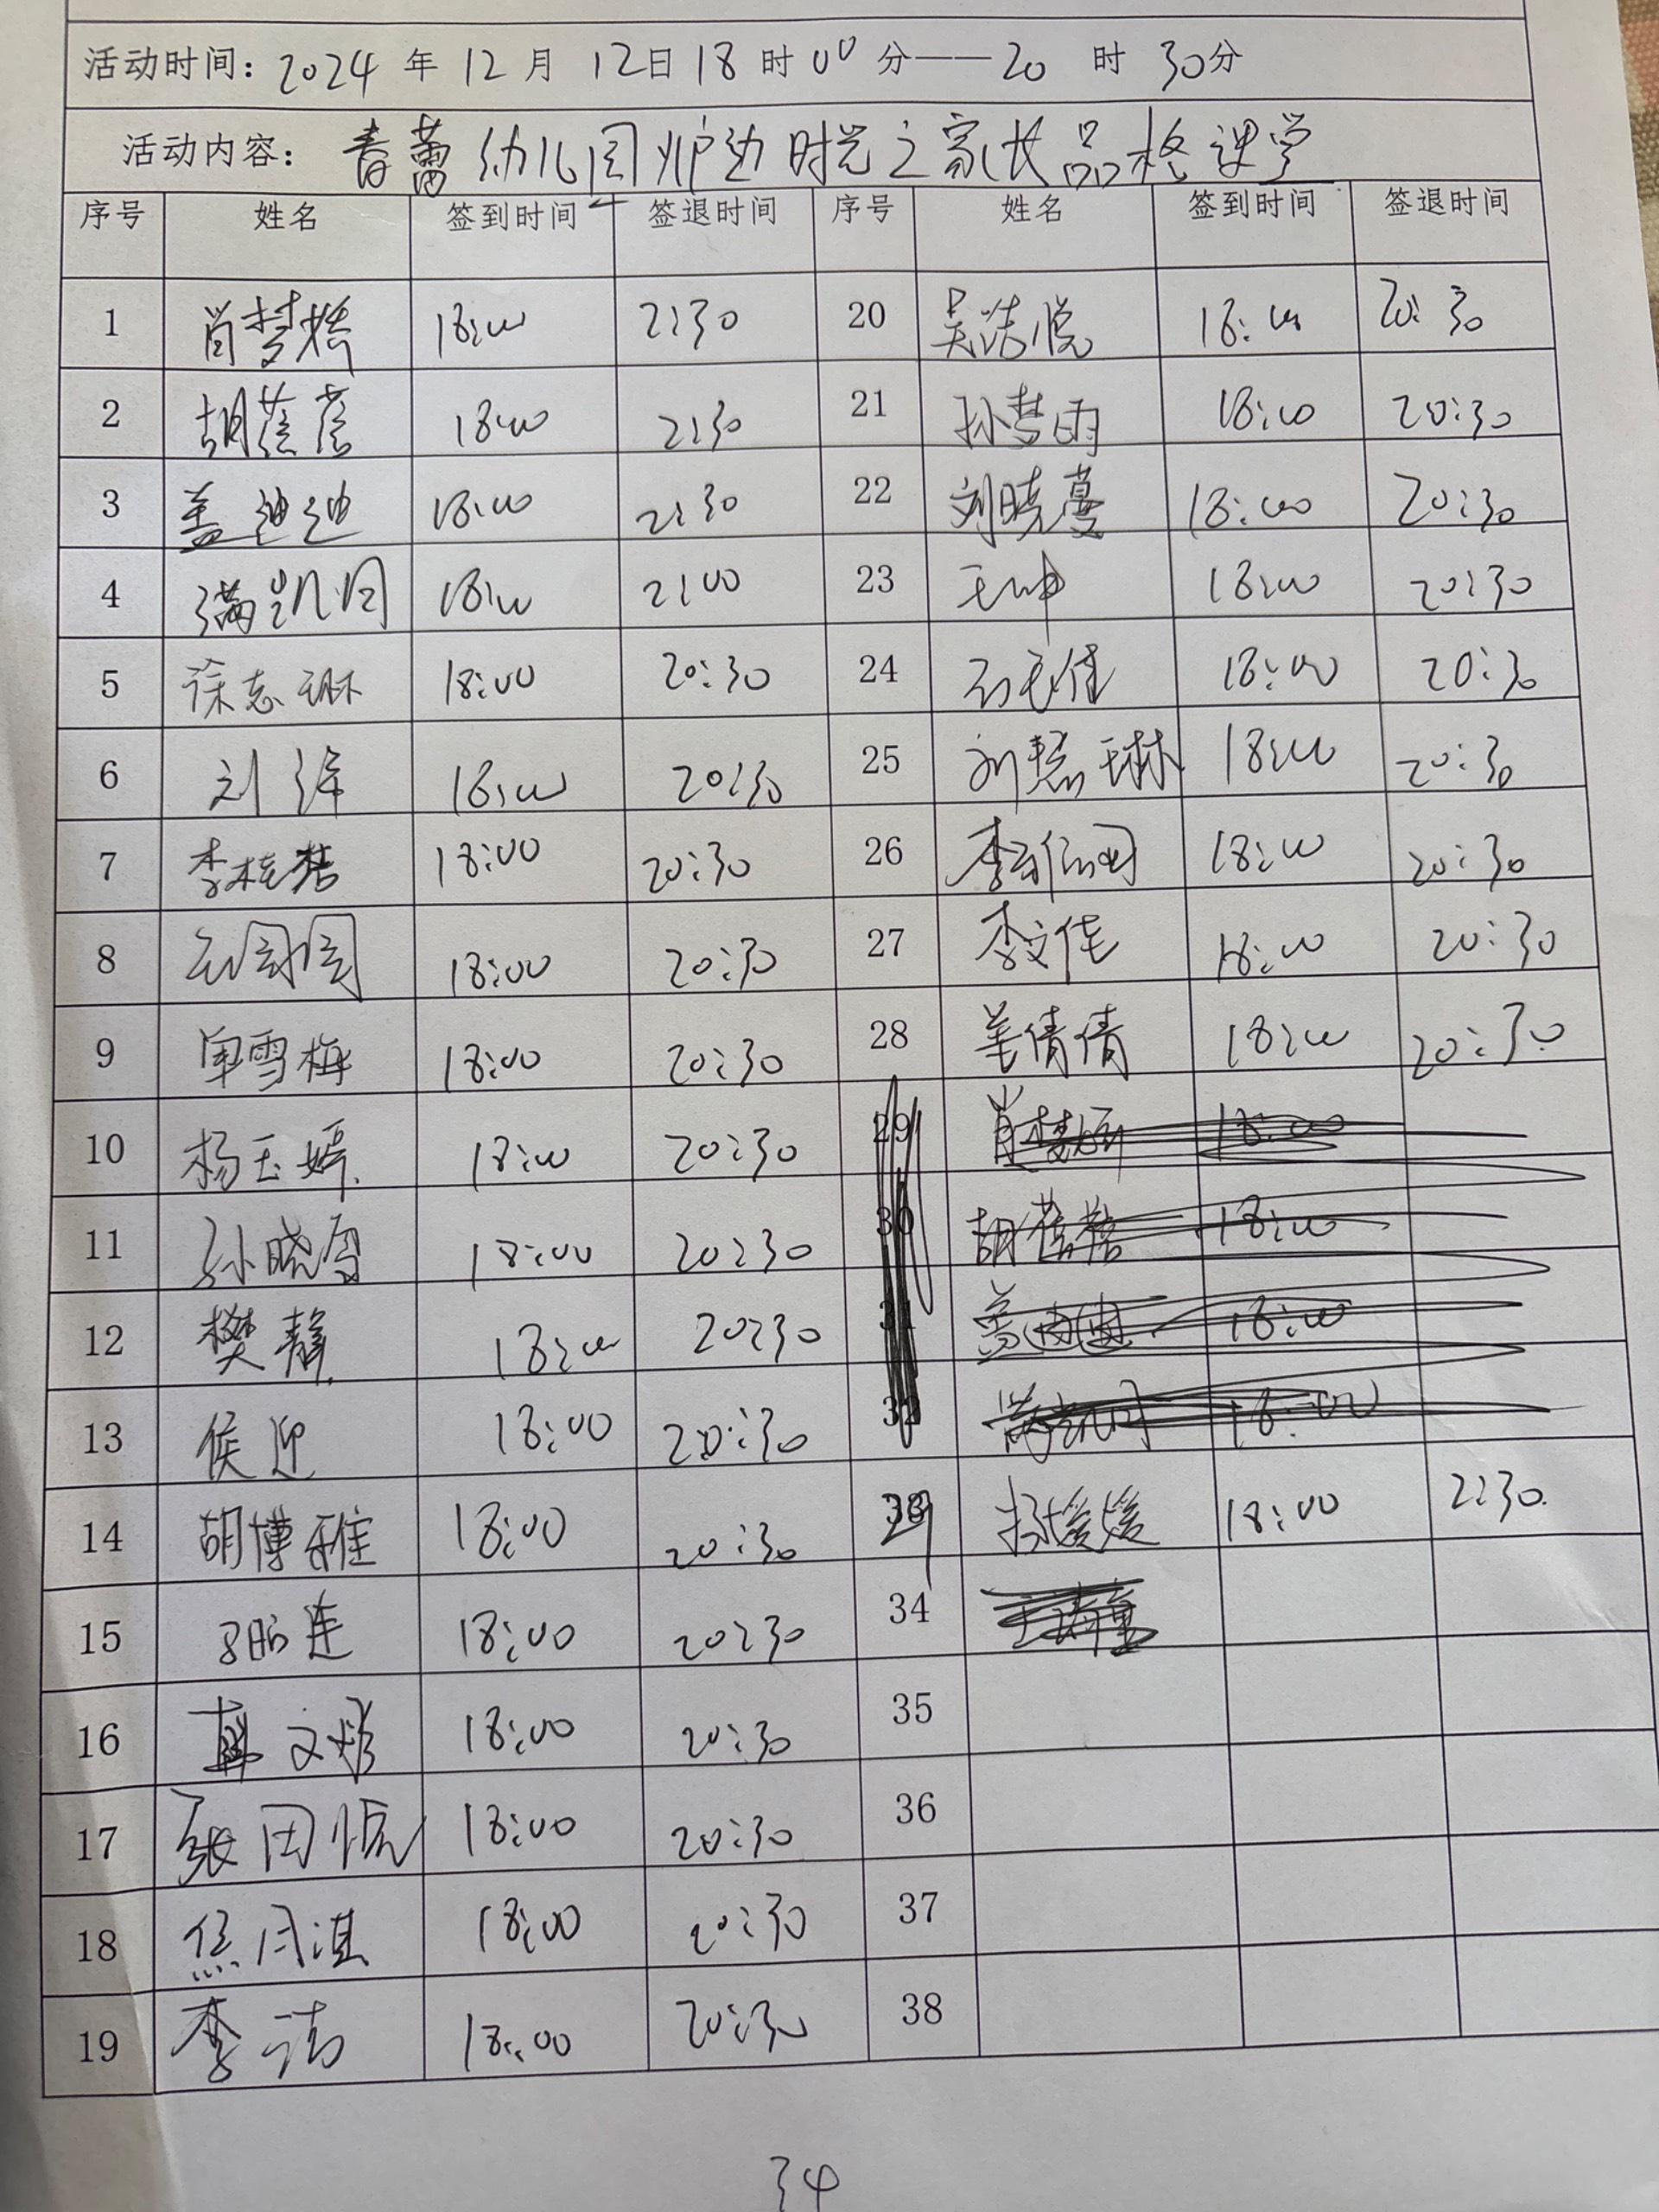 活动时间: 2024 年 12 月 12日 18 时 00 分——20 时 30分
活动内容: 春蕾幼儿园炉边时光之家长品格课堂
序号 姓名 签到时间 签退时间 序号 姓名 签到时间 签退时间
1 肖梦娇 18:00 21:30 20 吴浩悦 18:00 20:30
2 胡蓓蓓 18:00 21:30 21 孙梦雨 18:00 20:30
3 盖迪迪 18:00 21:30 22 刘晓蔓 18:00 20:30
4 满凯月 18:00 21:00 23 王坤 18:00 20:30
5 徐志琳 18:00 20:30 24 18:00 20:30
6 刘泽 18:00 20:30 25 刘慧琳 18:00 20:30
7 李桂喆 18:00 20:30 26 18:00 20:30
8 18:00 20:30 27 李文佳 18:00 20:30
9 单雪梅 18:00 20:30 28 姜倩倩 18:00 20:30
10 杨玉婷 18:00 20:30 29 18:00
11 孙晓雪 18:00 20:30 30 胡蓓蓓 18:00
12 樊静 18:00 20:30 31 18:00
13 侯迎 18:00 20:30 32 18:00
14 胡博雅 18:00 20:30 29 杨媛媛 18:00 21:30
15 18:00 20:30 34
16 文彬 18:00 20:30 35
17 张田悦 18:00 20:30 36
18 焦月淇 18:00 20:30 37
19 李诺 18:00 20:30 38
34